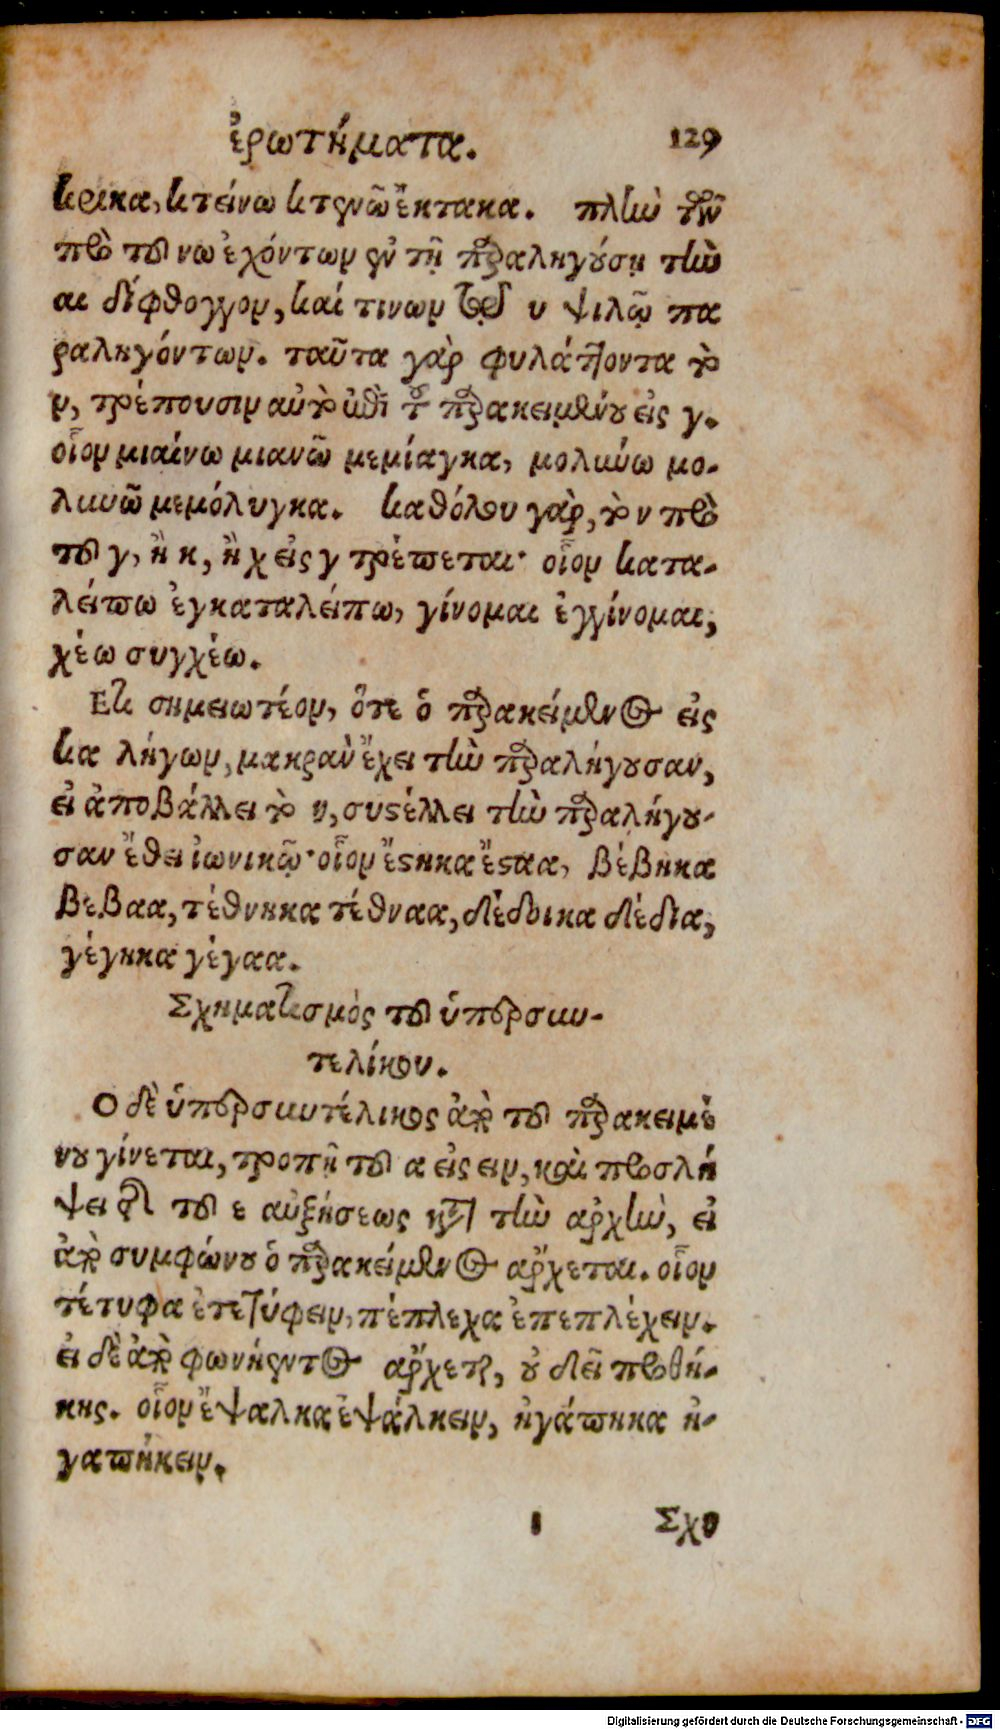 ἐρωτήματα. 129
κρικα, κτείνω κτενῶ ἔκτακα. πλὴν τῶν
πρὸ τοῦ νω ἐχόντων ἐν τῇ παραληγούσῃ τὴν
αι δίφθογγον, καί τινων τῶν υ ψιλῷ πα
ραληγόντων. ταῦτα γὰρ φυλάττοντα τὸ
ν, τρέπουσιν αὐτὸ ἐπὶ τοῦ παρακειμένου εἰς γ.
οἷον μιαίνω μιανῶ μεμίαγκα, μολύνω μο-
λυνῶ μεμόλυγκα. καθόλου γὰρ, τὸ ν πρὸ
τοῦ γ, ἢ κ, ἢ χ εἰς γ τρέπεται· οἷον κατα-
λείπω ἐγκαταλείπω, γίνομαι ἐγγίνομαι,
χέω συγχέω.
Ετι σημειωτέον, ὅτι ὁ παρακείμενος εἰς
κα λήγων, μακρὰν ἔχει τὴν παραλήγουσαν,
εἰ ἀποβάλλει τὸ κ, συστέλλει τὴν παραλήγου-
σαν ἔθει ἰωνικῷ· οἷον ἕστηκα ἕσταα, βέβηκα
βεβαα, τέθνηκα τέθναα, δέδοικα δέδια,
γέγηκα γέγαα.
Σχηματισμὸς τοῦ ὑπερσυν-
τελίκου.
Ο δὲ ὑπερσυντέλικος ἀπὸ τοῦ παρακειμέ
νου γίνεται, τροπῇ τοῦ α εἰς ειν, καὶ προσλή
ψει τοῦ ε αὐξήσεως κατὰ τὴν ἀρχὴν, εἰ
ἀπὸ συμφώνου ὁ παρακείμενος ἄρχεται. οἷον
τέτυφα ἐτετύφειν, πέπλεχα ἐπεπλέχειν.
εἰ δὲ ἀπὸ φωνήεντος ἄρχεται, οὐ δεῖ προσθή-
κης. οἷον ἔψαλκα ἐψάλκειν, ἠγάπηκα ἠ-
γαπήκειν.
ι Σχο
Digitalisierung gefördert durch die Deutsche Forschungsgemeinschaft - DFG